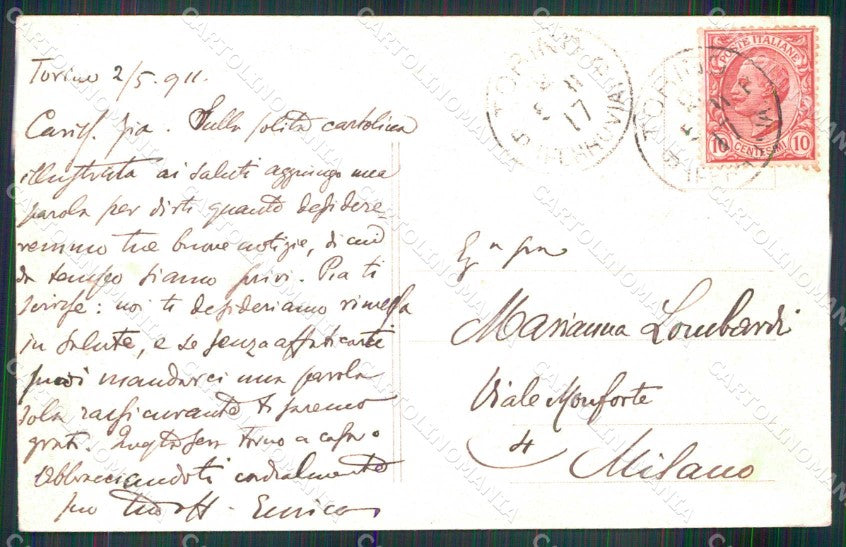 Torino 2/5.911.
Cariss. zia. Sulla solita cartolina
illustrata ai saluti aggiungo una
parola per dirti quanto desidere-
remmo tue buone notizie, di cui
da tempo siamo privi. Pia ti
scrisse: noi ti desideriamo rimessa
in salute, e se senza affaticarti
puoi mandarci una parola
sola rassicurante ti saremo
grati. torno a casa.
Abbracciandoti cordialmente
tuo Enrico
Eg a
Marianna Lombardi
Viale Monforte
4
Milano
TORINO
17
TORINO
POSTE ITALIANE
10 CENTESIMI 10
CARTOLINOMANIA